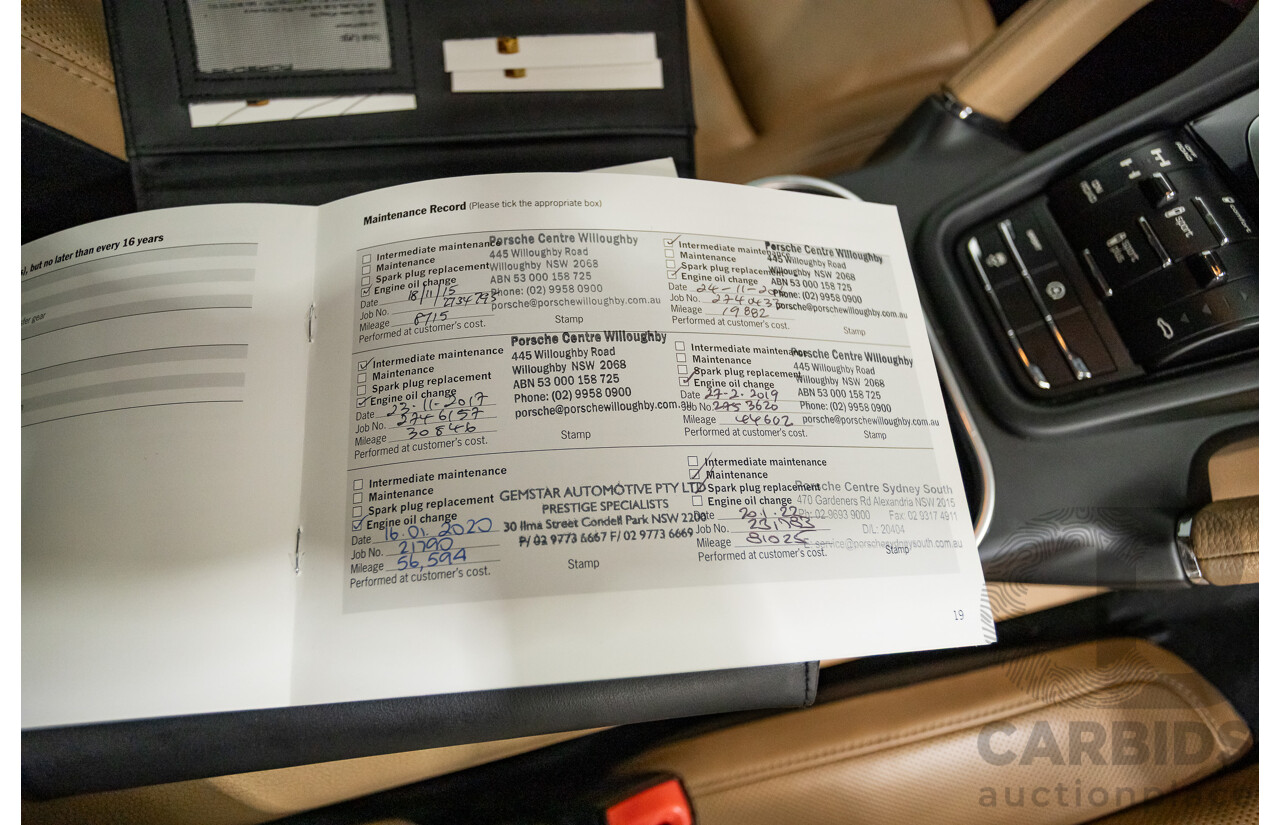 ), but no later than every 16 years
Maintenance Record (Please tick the appropriate box)
Intermediate maintenance
Maintenance
Spark plug replacement
Engine oil change
Date 18/11/15
Job No. 2734793
Mileage 8715
Performed at customer's cost.
Porsche Centre Willoughby
445 Willoughby Road
Willoughby NSW 2068
ABN 53 000 158 725
Phone: (02) 9958 0900
porsche@porschewilloughby.com.au
Stamp
Intermediate maintenance
Maintenance
Spark plug replacement
Engine oil change
Date 24-11-20
Job No.
Mileage 19882
Performed at customer's cost.
Porsche Centre Willoughby
445 Willoughby Road
Willoughby NSW 2068
ABN 53 000 158 725
Phone: (02) 9958 0900
porsche@porschewilloughby.com.au
Stamp
Intermediate maintenance
Maintenance
Spark plug replacement
Engine oil change
Date 23-11-2017
Job No. 2746157
Mileage 30846
Performed at customer's cost.
Porsche Centre Willoughby
445 Willoughby Road
Willoughby NSW 2068
ABN 53 000 158 725
Phone: (02) 9958 0900
porsche@porschewilloughby.com.au
Stamp
Intermediate maintenance
Maintenance
Spark plug replacement
Engine oil change
Date 27-2-2019
Job No. 2753620
Mileage 44602
Performed at customer's cost.
Porsche Centre Willoughby
445 Willoughby Road
Willoughby NSW 2068
ABN 53 000 158 725
Phone: (02) 9958 0900
porsche@porschewilloughby.com.au
Stamp
Intermediate maintenance
Maintenance
Spark plug replacement
Engine oil change
Date 16.01.2020
Job No. 21790
Mileage 56,594
Performed at customer's cost.
GEMSTAR AUTOMOTIVE PTY LTD
PRESTIGE SPECIALISTS
30 Ilma Street Condell Park NSW 2200
P/ 02 9773 6667 F/ 02 9773 6669
Stamp
Intermediate maintenance
Maintenance
Spark plug replacement
Engine oil change
Date 20.1.22
Job No. 231783
Mileage 81025
Performed at customer's cost.
Porsche Centre Sydney South
470 Gardeners Rd Alexandria NSW 2015
Ph: 02-9693 9000 Fax: 02 9317 4911
D/L: 20404
service@porschesydneysouth.com.au
Stamp
19
CARBIDS